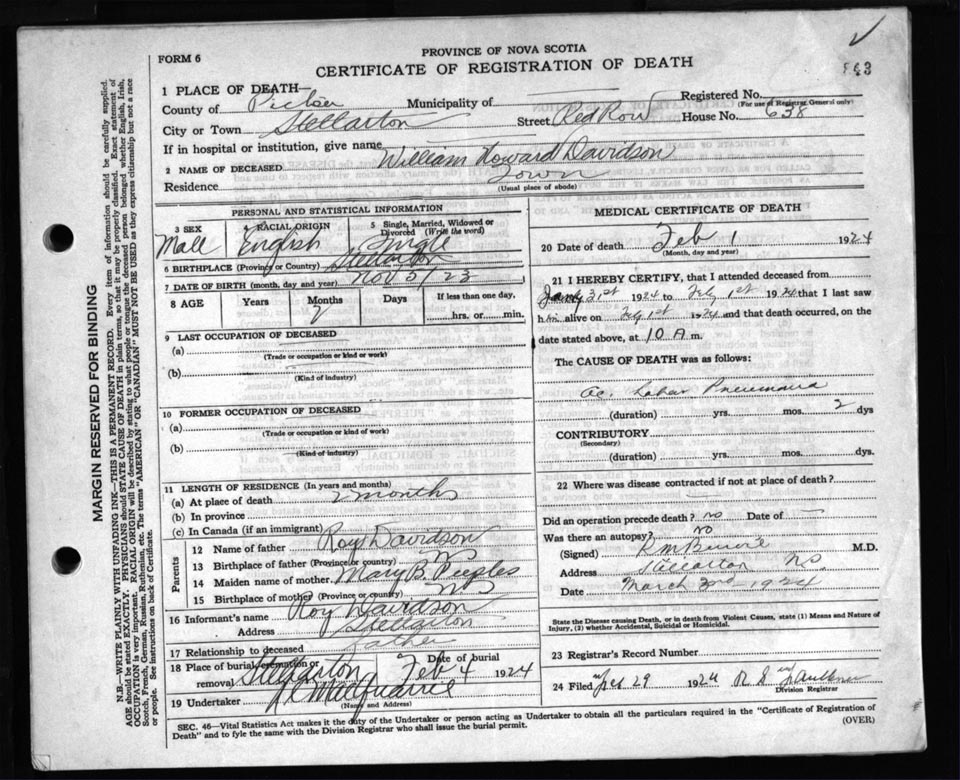 PROVINCE OF NOVA SCOTIA
FORM 6
CERTIFICATE OF REGISTRATION OF DEATH
863
1 PLACE OF DEATH—
County of Pictou Municipality of Registered No.
(For use of Registrar General only)
City or Town Stellarton Street Red Row House No. 638
If in hospital or institution, give name
2 NAME OF DECEASED William Howard Davidson
Residence Town
(Usual place of abode)
PERSONAL AND STATISTICAL INFORMATION
3 SEX Male 4 RACIAL ORIGIN English 5 Single, Married, Widowed or Divorced (Write the word) Single
6 BIRTHPLACE (Province or Country) Stellarton
7 DATE OF BIRTH (month, day and year) Nov 5/23
8 AGE Years Months 2 Days If less than one day,
hrs. or min.
9 LAST OCCUPATION OF DECEASED
(a)
(Trade or occupation or kind or work)
(b)
(Kind of industry)
10 FORMER OCCUPATION OF DECEASED
(a)
(Trade or occupation or kind of work)
(b)
(Kind of industry)
11 LENGTH OF RESIDENCE (In years and months)
(a) At place of death 2 months
(b) In province
(c) In Canada (if an immigrant)
Parents
12 Name of father Roy Davidson
13 Birthplace of father (Province or country) N S
14 Maiden name of mother Mary B. Peeples
15 Birthplace of mother (Province or country) N S
16 Informant's name Roy Davidson
Address Stellarton
17 Relationship to deceased father
18 Place of burial, cremation or removal Stellarton Date of burial Feb 4 1924
19 Undertaker
(Name and Address)
MEDICAL CERTIFICATE OF DEATH
20 Date of death Feb 1 1924
(Month, day and year)
21 I HEREBY CERTIFY, that I attended deceased from
Jany 31st 1924 to Feby 1st 1924 that I last saw
him alive on Feby 1st 1924 and that death occurred, on the
date stated above, at 10 A m.
The CAUSE OF DEATH was as follows:
Ac. Lobar Pneumonia
(duration) yrs. mos. 2 dys
CONTRIBUTORY
(Secondary)
(duration) yrs. mos. dys
22 Where was disease contracted if not at place of death?
Did an operation precede death? no Date of —
Was there an autopsy? No
(Signed) M.D.
Address Stellarton N.S.
Date March 2nd 1924
State the Disease causing Death, or in death from Violent Causes, state (1) Means and Nature of
Injury, (2) whether Accidental, Suicidal or Homicidal.
23 Registrar's Record Number
24 Filed 29 1924
Division Registrar
SEC. 46—Vital Statistics Act makes it the duty of the Undertaker or person acting as Undertaker to obtain all the particulars required in the "Certificate of Registration of
Death" and to fyle the same with the Division Registrar who shall issue the burial permit. (OVER)
MARGIN RESERVED FOR BINDING
N.B.—WRITE PLAINLY WITH UNFADING INK—THIS IS A PERMANENT RECORD. Every item of information should be carefully supplied.
AGE should be stated EXACTLY. PHYSICIANS should STATE CAUSE OF DEATH in plain terms, so that it may be properly classified. Exact statement of
OCCUPATION is very important. RACIAL ORIGIN will be described by stating to what people or tongue the deceased person belonged whether English, Irish,
Scotch, French, German, Russian, Ruthenian, etc. The terms "AMERICAN" OR "CANADIAN" MUST NOT BE USED as they express citizenship but not a race
or people. See instructions on back of Certificate.